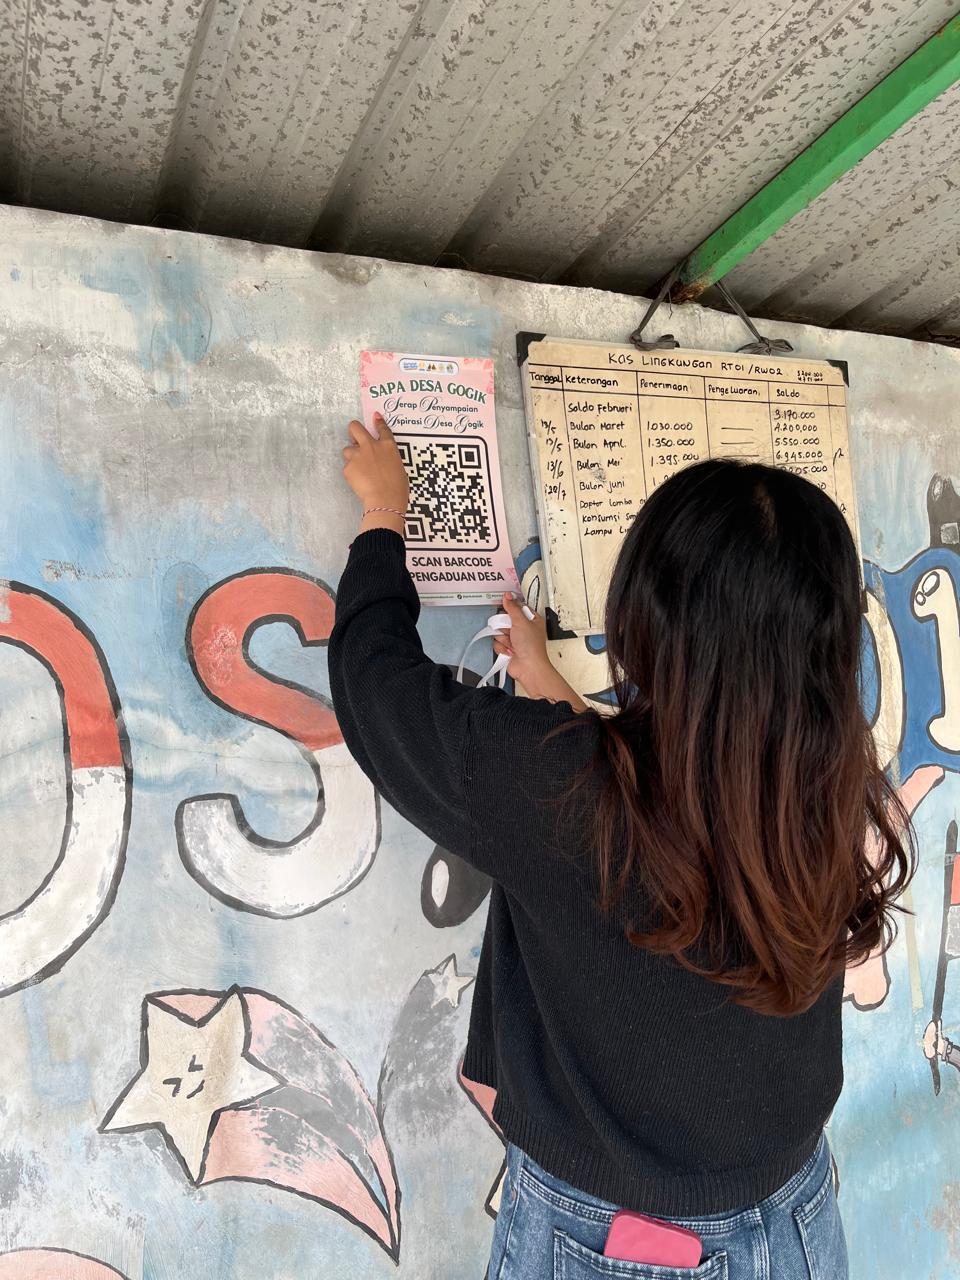 SAPA DESA GOGIK
Serap Penyampaian
Aspirasi Desa Gogik
SCAN BARCODE
PENGADUAN DESA
KAS LINGKUNGAN RT01/RW02
Tanggal Keterangan Penerimaan Pengeluaran Saldo
Saldo Februari 3.170.000
Bulan Maret 1.030.000 4.200.000
Bulan April. 1.350.000 5.550.000
13/6 Bulan Mei 1.395.000 6.945.000
Bulan Juni
Daftar Lomba
Konsumsi
Lampu
OS